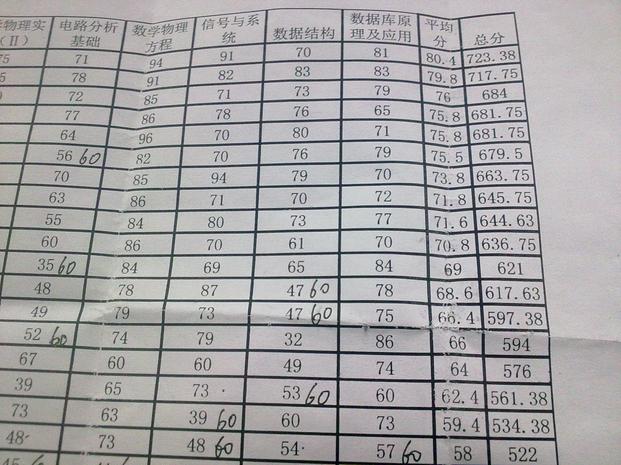 物理实(II) 电路分析基础 数学物理方程 信号与系统 数据结构 数据库原理及应用 平均分 总分
75 71 94 91 70 81 80.4 723.38
78 91 82 83 83 79.8 717.75
72 85 71 73 79 76 684
77 86 78 76 65 75.8 681.75
64 96 70 80 71 75.8 681.75
56 60 82 70 76 79 75.5 679.5
70 85 94 79 70 73.8 663.75
63 86 71 70 72 71.8 645.75
55 84 80 73 77 71.6 644.63
60 86 70 61 70 70.8 636.75
35 60 84 69 65 84 69 621
48 78 87 47 60 78 68.6 617.63
49 79 73 47 60 75 66.4 597.38
52 60 74 79 32 86 66 594
67 60 60 49 74 64 576
39 65 73 53 60 60 62.4 561.38
73 63 39 60 60 73 59.4 534.38
48 73 48 60 54 57 60 58 522